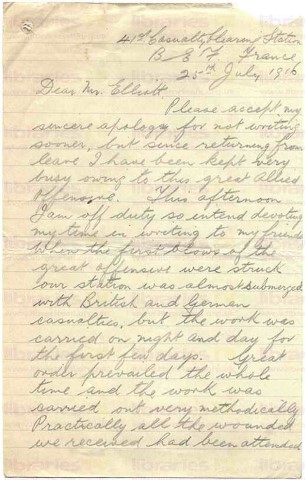 41st Casualty Clearing Station
B E F France
25th July 1916
Dear Mr. Elliott
Please accept my
sincere apology for not writing
sooner, but since returning from
leave I have been kept very
busy owing to this great Allied
Offensive. This afternoon
I am off duty so intend devoting
my time in writing to my friends
When the first blows of the
great offensive were struck
our station was almost submerged
with British and German
casualties, but the work was
carried on night and day for
the first few days. Great
order prevailed the whole
time and the work was
carried out very methodically
Practically all the wounded
we received had been attended
libraries